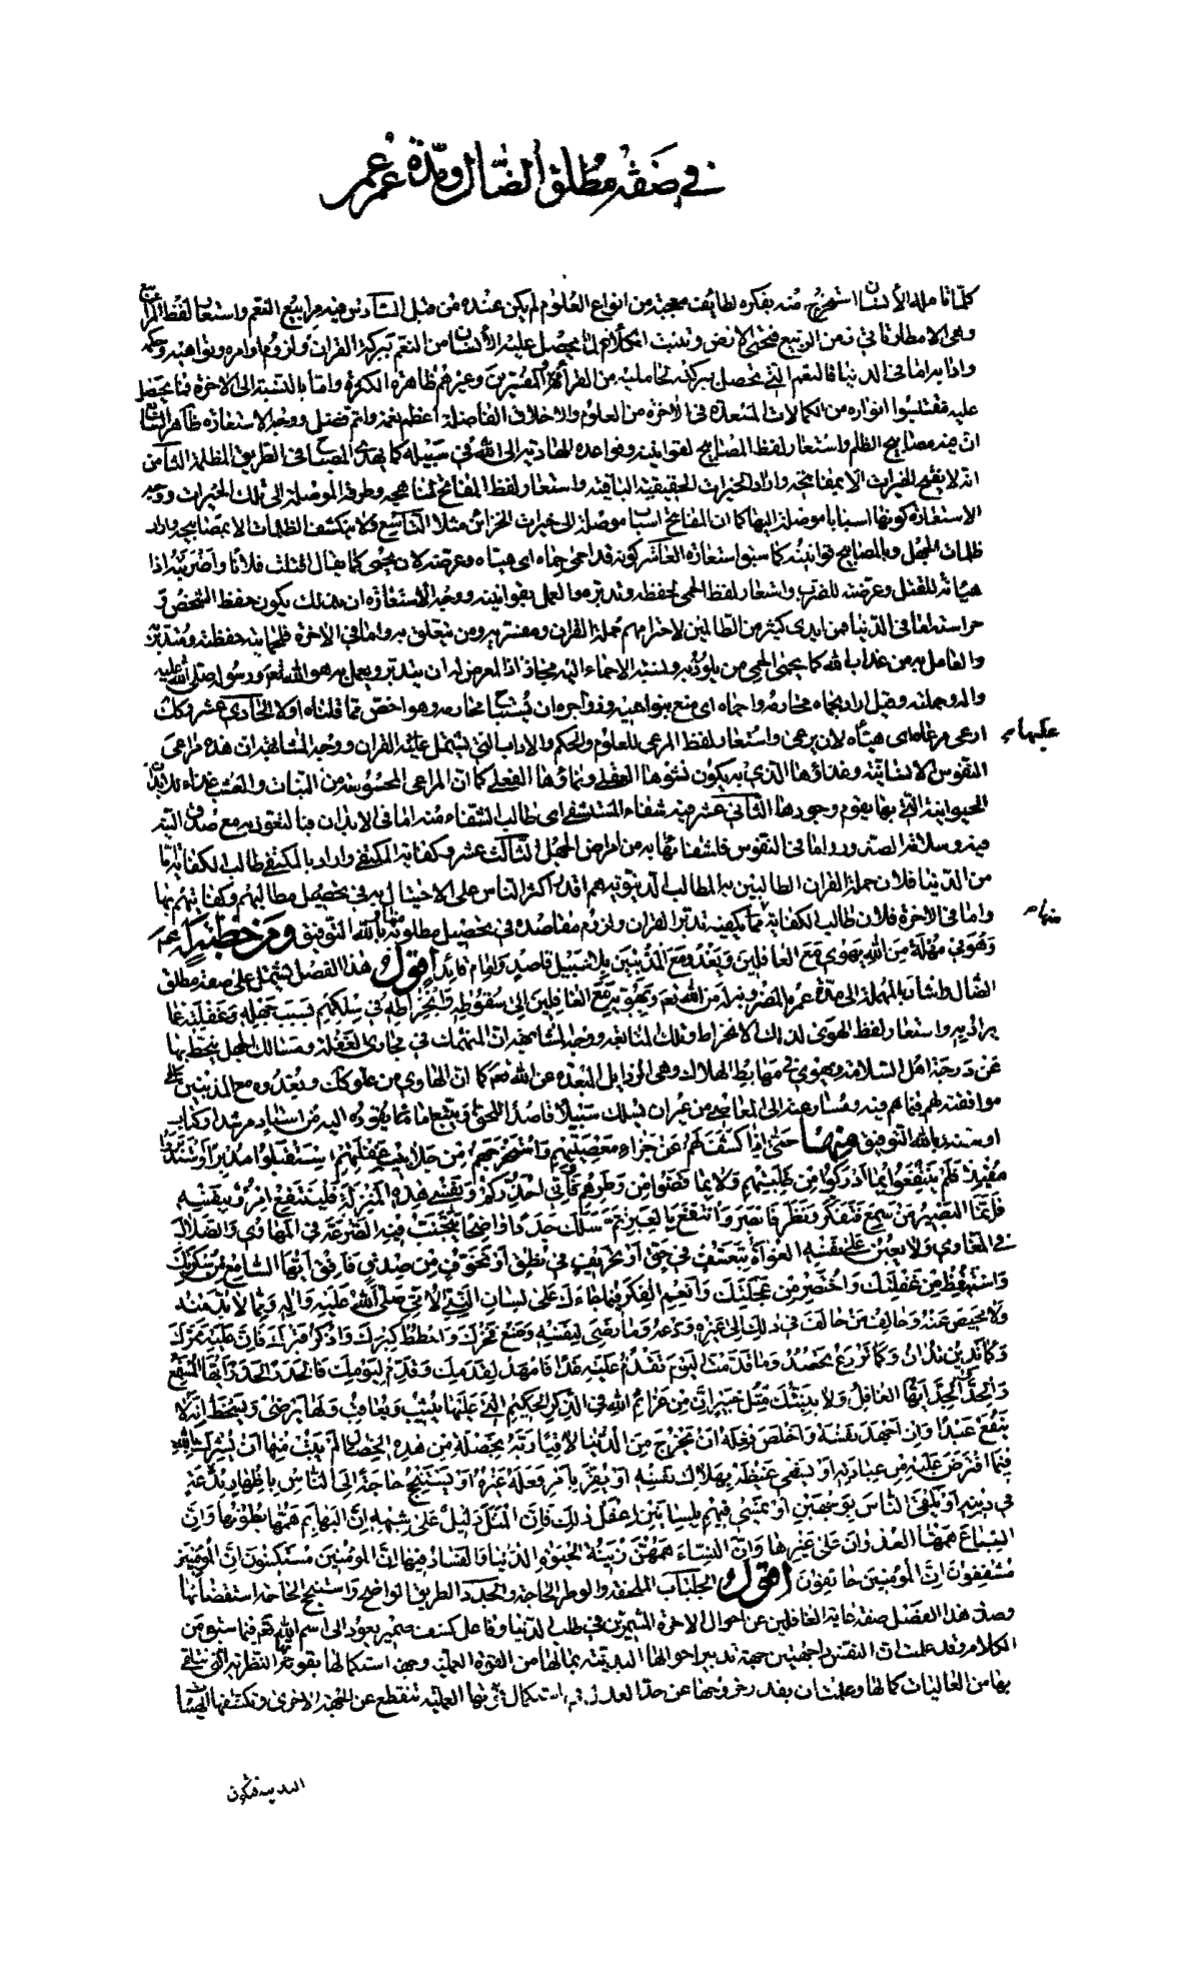 في صفة مطلق الضال ومدة عمره
كلما تأمله الإنسان استخرج منه بفكره لطائف معجبة من أنواع العلوم لم يكن عنده من قبل السادس فيه مرابيع النعم واستعار لفظ المرابيع
وهي الأمطار تأتي زمن الربيع فتحيي الأرض وتنبت الكلأ لما يحصل عليه الإنسان من النعم ببركة القرآن ولزوم أوامره ونواهيه وحكمه
وآدابه أما في الدنيا فالنعم التي تحصل ببركته لحامليه من القراء والمفسرين وغيرهم ظاهرة الكثرة وأما بالنسبة إلى الآخرة فما يحصل
عليه مقتبسوا أنواره من الكمالات المسعدة في الآخرة من العلوم والأخلاق الفاضلة أعظم نعمة وأتم فضل ووجه الاستعارة ظاهر السابع
أن فيه مصابيح الظلم واستعار لفظ المصابيح لقوانينه وقواعده الهادية إلى الله في سبيله كما يهدي المصباح في الطريق المظلمة الثامن
أنه لا يفتح الخيرات إلا بمفاتحه وأراد الخيرات الحقيقية الباقية واستعار لفظ المفاتح لمناهجه وطرقه الموصلة إلى تلك الخيرات ووجه
الاستعارة كونها أسبابا موصلة إليها كما أن المفاتح أسباب موصلة إلى خيرات الخزائن مثلا التاسع ولا ينكشف الظلمات إلا بمصابيحه وأراد
ظلمات الجهل وبالمصابيح قوانينه كما سبق استعارة العاشر كونه قد أحمى حماه أي هيأه وعرضه لأن يحمى كما يقال أقتلت فلانا وأضربته إذا
هيأته للقتل وعرضته للضرب واستعار لفظ الحمى لحفظه وتدبره والعمل بقوانينه ووجه الاستعارة أن بذلك يكون حفظ الشخص و
حراسته أما في الدنيا فمن أيدي كثير من الظالمين لاحترامهم حملة القرآن ومفسريه ومن يتعلق به وأما في الآخرة فلحمايته حفظته ومتدبريه
والعامل به من عذاب الله كما يحمي الحمى من يلوذ به ونسبة الإحماء إليه مجاز إذ المعرض له أن يتدبر ويعمل به هو الله تعالى ورسوله صلى الله عليه
وآله وحملته وقيل أراد بحماه محارمه وأحماه أي منع بنواهيه وزواجره أن يستباح محارمه وهو أخص مما قلناه أولا الحادي عشر وكذلك
أرعى مرعاه أي هيأه لأن يرعى واستعار لفظ المرعى للعلوم والحكم والآداب التي يشتمل عليها القرآن ووجه المشابهة أن هذه مراعي
عليها
النفوس الإنسانية وغذاؤها الذي به يكون نشوها العقلي ونماؤها الفعلي كما أن المراعي المحسوسة من النبات والعشب غذاء للأبدان
الحيوانية التي بها يقوم وجودها الثاني عشر فيه شفاء المستشفي أي طالب الشفاء منه أما في الأبدان فبالتعوذ به مع صدق النية
فيه وسلامة الصدور وأما في النفوس فلشفائها به من أمراض الجهل الثالث عشر وكفاية المكتفي وأراد بالمكتفي طالب الكفاية أما
من الدنيا فلأن حملة القرآن الطالبين به المطالب الدنيوية هم أقدر أكثر الناس على الاحتيال به في تحصيل مطالبهم وكفايتهم بها
وأما في الآخرة فلأن طالب الكفاية منها يكفيه تدبر القرآن ولزوم مقاصده في تحصيل مطلوبه منها وبالله التوفيق ومن خطبة له عم
منها
وهو في مهلة من الله يهوي مع الغافلين ويغدو مع المذنبين بلا سبيل قاصد ولا إمام قائد أقول هذا الفصل يشتمل على صفة مطلق
الضال وأشار بالمهلة إلى مدة عمره المضروبة له من الله تعالى وبهويه مع الغافلين إلى سقوطه وانخراطه في سلكهم بسبب جهله وغفلته عما
يراد به واستعار لفظ الهوى لذلك الانخراط وتلك المتابعة ووجه المشابهة أن المنهمك في مجاري الغفلة ومسالك الجهل ينحط بها
عن درجة أهل السلامة ويهوي في مهابط الهلاك وهي الرذائل المبعدة عن الله تعالى كما أن الهاوي من علو كذلك وبغدوه مع المذنبين إلى
موافقته لهم فيما هم فيه ومسارعته إلى المعاصي من غير أن يسلك سبيلا قاصدا للحق ويتبع إماما يقوده إليه من أستاد مرشد أو كتاب
أو سنة وبالله التوفيق منها حتى إذا كشف لهم عن جزاء معصيتهم واستخرجهم من جلابيب غفلتهم استقبلوا مدبرا واستدبروا
مقبلا فلم ينتفعوا بما أدركوا من طلبتهم ولا بما قضوا من وطرهم فإني أحذركم ونفسي هذه المنزلة فلينتفع امرؤ بنفسه
فإنما البصير من سمع فتفكر ونظر فأبصر وانتفع بالعبر ثم سلك جددا واضحا يتجنب فيه الصرعة في المهاوي والضلال
في المغاوي ولا يعين على نفسه الغواة بتعسف في حق أو تحريف في نطق أو تخوف من صدق فأفق أيها السامع من سكرتك
واستيقظ من غفلتك واختصر من عجلتك وأنعم الفكر فيما جاءك على لسان النبي الأمي صلى الله عليه وآله مما لا بد منه
ولا محيص عنه وخالف من خالف في ذلك إلى غيره ودعه وما رضي لنفسه وضع فخرك واحطط كبرك واذكر قبرك فإن عليه ممرك
وكما تدين تدان وكما تزرع تحصد وما قدمت اليوم تقدم عليه غدا فامهد لقدمك وقدم ليومك فالحذر الحذر أيها المستمع
والجد الجد أيها الغافل ولا ينبئك مثل خبير إن من عزائم الله في الذكر الحكيم التي عليها يثيب ويعاقب ولها يرضى ويسخط إنه لا
ينفع عبدا وإن أجهد نفسه وأخلص فعله أن يخرج من الدنيا لاقيا ربه بخصلة من هذه الخصال لم يتب منها أن يشرك بالله
فيما افترض عليه من عبادته أو يشفي غيظه بهلاك نفسه أو يقر بأمر فعله غيره أو يستنجح حاجة إلى الناس بإظهار بدعة
في دينه أو يلقى الناس بوجهين أو يمشي فيهم بلسانين اعقل ذلك فإن المثل دليل على شبهه إن البهائم همها بطونها وإن
السباع همها العدوان على غيرها وإن النساء همهن زينة الحيوة الدنيا والفساد فيها إن المؤمنين مستكينون إن المؤمنين
مشفقون إن المؤمنين خائفون أقول الجلباب الملحفة والوطر الحاجة والجدد الطريق الواضح واستنجح الحاجة استقضاها
وصدر هذا الفصل صفة غاية الغافلين عن أحوال الآخرة المشمرين في طلب الدنيا وفاعل كشف ضمير يعود إلى اسم الله تعالى فيما سبق من
الكلام وقد علمت أن النفس ذا جهتين جهة تدبير أحوالها البدنية بما لها من القوة العملية وجهة استكمالها بقوتها النظرية التي تتلقى
بها من العاليات كمالها وعلمت أن بقدر خروجها عن حد العدل في استكمال قوتها العملية تنقطع عن الجهة الأخرى وتكتنفها الهيئات
البدنية فتكون